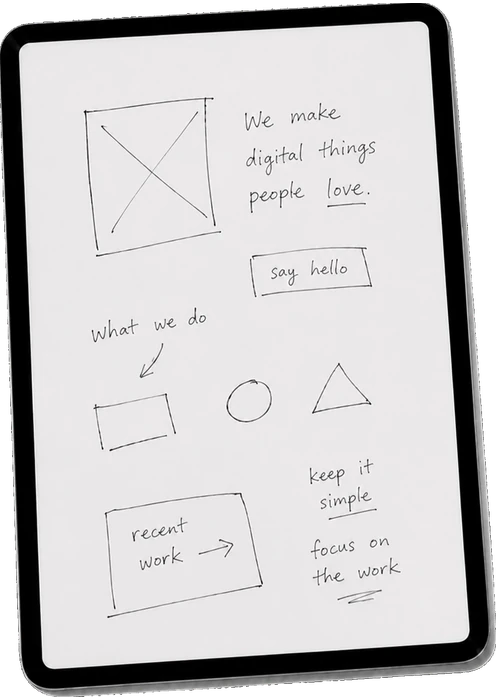 We make
digital things
people love.
say hello
What we do
recent
work →
keep it
simple
focus on
the work